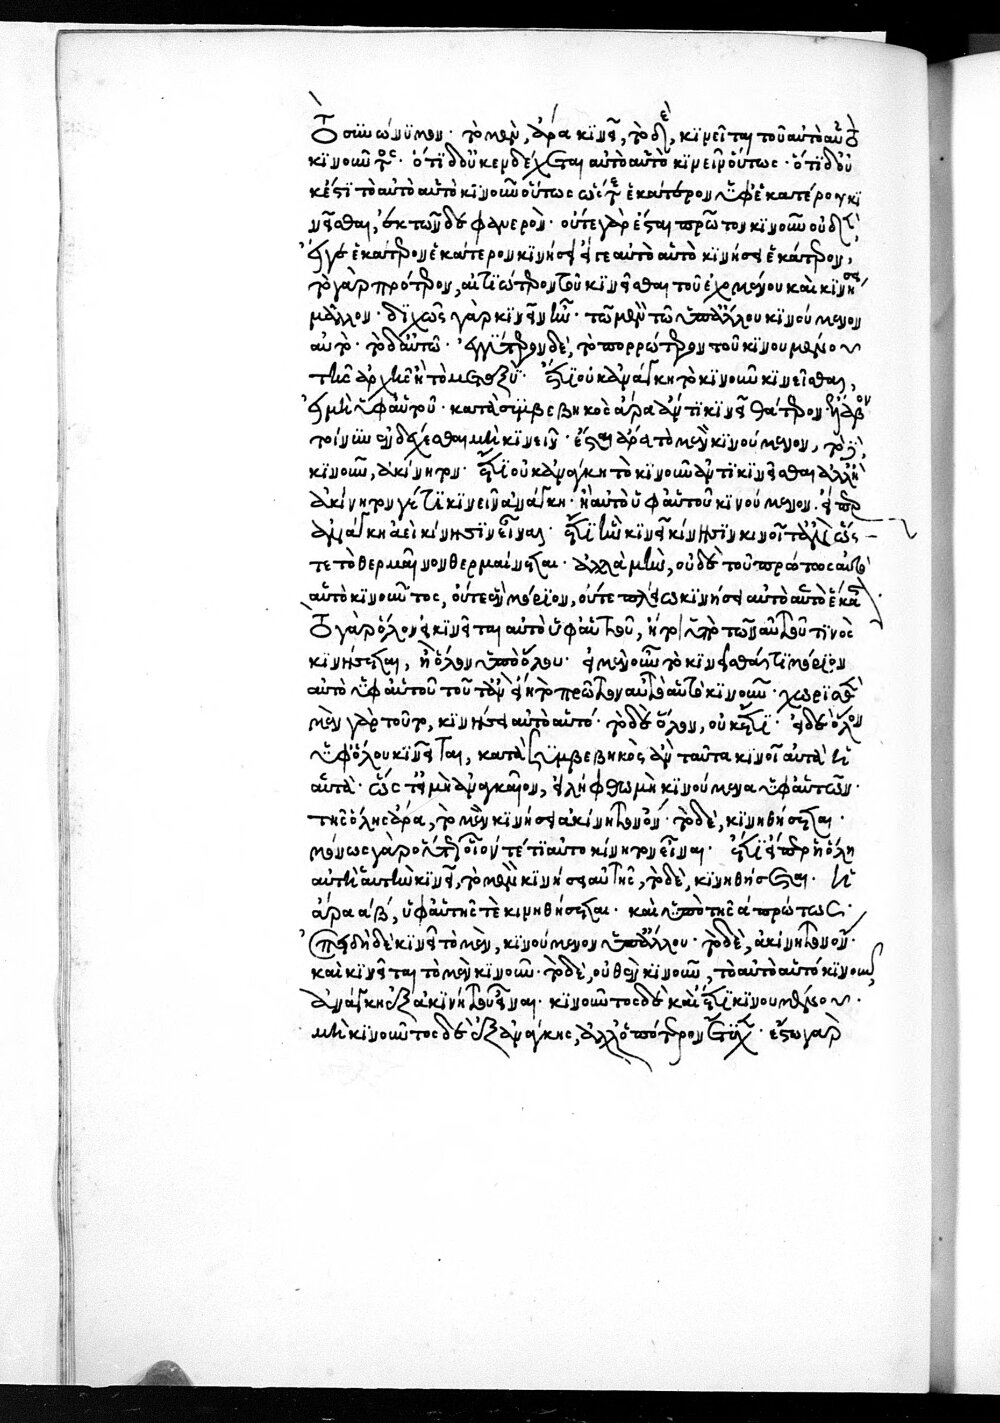 Τὸ συνώνυμον· τὸ μὲν, ἄρα κινεῖ, τὸ δὲ, κινεῖται τοῦ αὐτὸ αὑτὸ
κινοῦντος· ὅτι δ' οὐκ ἐνδέχεται αὐτὸ αὑτὸ κινεῖν οὕτως· ὅτι δ' οὐ
κέστι τὸ αὐτὸ αὑτὸ κινοῦν οὕτως ὥστε ἑκάτερον ὑφ' ἑκατέρου κι
νεῖσθαι, ἐκ τῶνδε φανερόν· οὔτε γὰρ ἔσται πρῶτον κινοῦν οὐδὲν,
εἴγε ἑκάτερον ἑκάτερον κινήσει εἴτε αὐτὸ αὑτὸ κινήσει ἑκάτερον,
τὸ γὰρ πρότερον, αἰτιώτερον τοῦ κινεῖσθαι τοῦ ἐχομένου καὶ κινήσει
μᾶλλον· διχῶς γὰρ κινεῖν ἦν· τῶ μὲν τῶ ὑπ' ἄλλου κινούμενον
αὐτὸ· τὸ δ' αὐτῶ· ἐγγύτερον δὲ, τὸ πορρώτερον τοῦ κινουμένου
τῆς ἀρχῆς ἢ τὸ μεταξὺ· ἔτι οὐκ ἀνάγκη τὸ κινοῦν κινεῖσθαι,
εἰ μὴ ὑφ' αὑτοῦ· κατὰ συμβεβηκὸς ἄρα ἀντικινεῖ θάτερον· ἔλαβον
τοίνυν ἐνδέχεσθαι μὴ κινεῖν· ἔσται ἄρα τὸ μὲν κινούμενον, τὸ δὲ,
κινοῦν, ἀκίνητον· ἔτι οὐκ ἀνάγκη τὸ κινοῦν ἀντικινεῖσθαι ἀλλ' ἢ
ἀκίνητον γέ τι κινεῖν ἀνάγκη· ἢ αὐτὸ ὑφ' αὑτοῦ κινούμενον. εἴπερ
ἀνάγκη ἀεὶ κίνησιν εἶναι, ἔτι ἣν κινεῖ κίνησιν κινοῖτ' ἂν ὥς-
τε τὸ θερμαῖνον θερμαίνεται· ἀλλὰ μὴν, οὐδὲ τοῦ πρώτως αὐτὸ
αὑτὸ κινοῦντος, οὔτε ἓν μόριον, οὔτε πλείω κινήσει αὐτὸ αὑτὸ ἕκα
Τὸ γὰρ ὅλον εἰ κινεῖται αὐτὸ ὑφ' αὑτοῦ, ἤτοι ὑπὸ τῶν αὑτοῦ τινὸς
κινήσεται, ἢ ὅλον ὑπὸ ὅλου· εἰ μὲν οὖν τὸ κινεῖσθαί τι μόριον
αὐτὸ ὑφ' αὑτοῦ τοῦτ' ἂν εἴη τὸ πρῶτον αὐτὸ αὑτὸ κινοῦν· χωρισθὲν
μὲν γὰρ τοῦτο, κινήσει αὐτὸ αὑτό· τὸ δὲ ὅλον, οὐκέτι· εἰ δὲ ὅλον
ὑφ' ὅλου κινεῖται, κατὰ συμβεβηκὸς ἂν ταῦτα κινοῖ αὐτὰ
αὑτά· ὥστ' εἰ μὴ ἀναγκαῖον, εἰλήφθω μὴ κινούμενα ὑφ' αὑτῶν·
τῆς ὅλης ἄρα, τὸ μὲν κινήσει ἀκίνητον ὄν· τὸ δὲ, κινηθήσεται·
μόνως γὰρ οὕτως οἷόν τέ τι αὐτοκίνητον εἶναι· ἔτι εἴπερ ἡ ὅλη
αὐτὴ αὑτὴν κινεῖ, τὸ μὲν κινήσει αὐτῆς, τὸ δὲ, κινηθήσεται· ἡ
ἄρα αβ, ὑφ' αὑτῆς τε κινηθήσεται· καὶ ὑπὸ τῆς α πρώτως·
ἐπειδὴ δὲ κινεῖ τὸ μὲν, κινούμενον ὑπ' ἄλλου· τὸ δὲ, ἀκίνητον ὂν·
καὶ κινεῖται τὸ μὲν κινοῦν· τὸ δὲ, οὐθὲν κινοῦν, τὸ αὐτὸ αὑτὸ κινοῦν,
ἀνάγκη ἐξ ἀκινήτου εἶναι· κινοῦντος δὲ καὶ ἔτι κινουμένου·
μὴ κινοῦντος δὲ ἐξ ἀνάγκης, ἀλλ' ὁπότερον ἔτυχ· ἔστω γὰρ